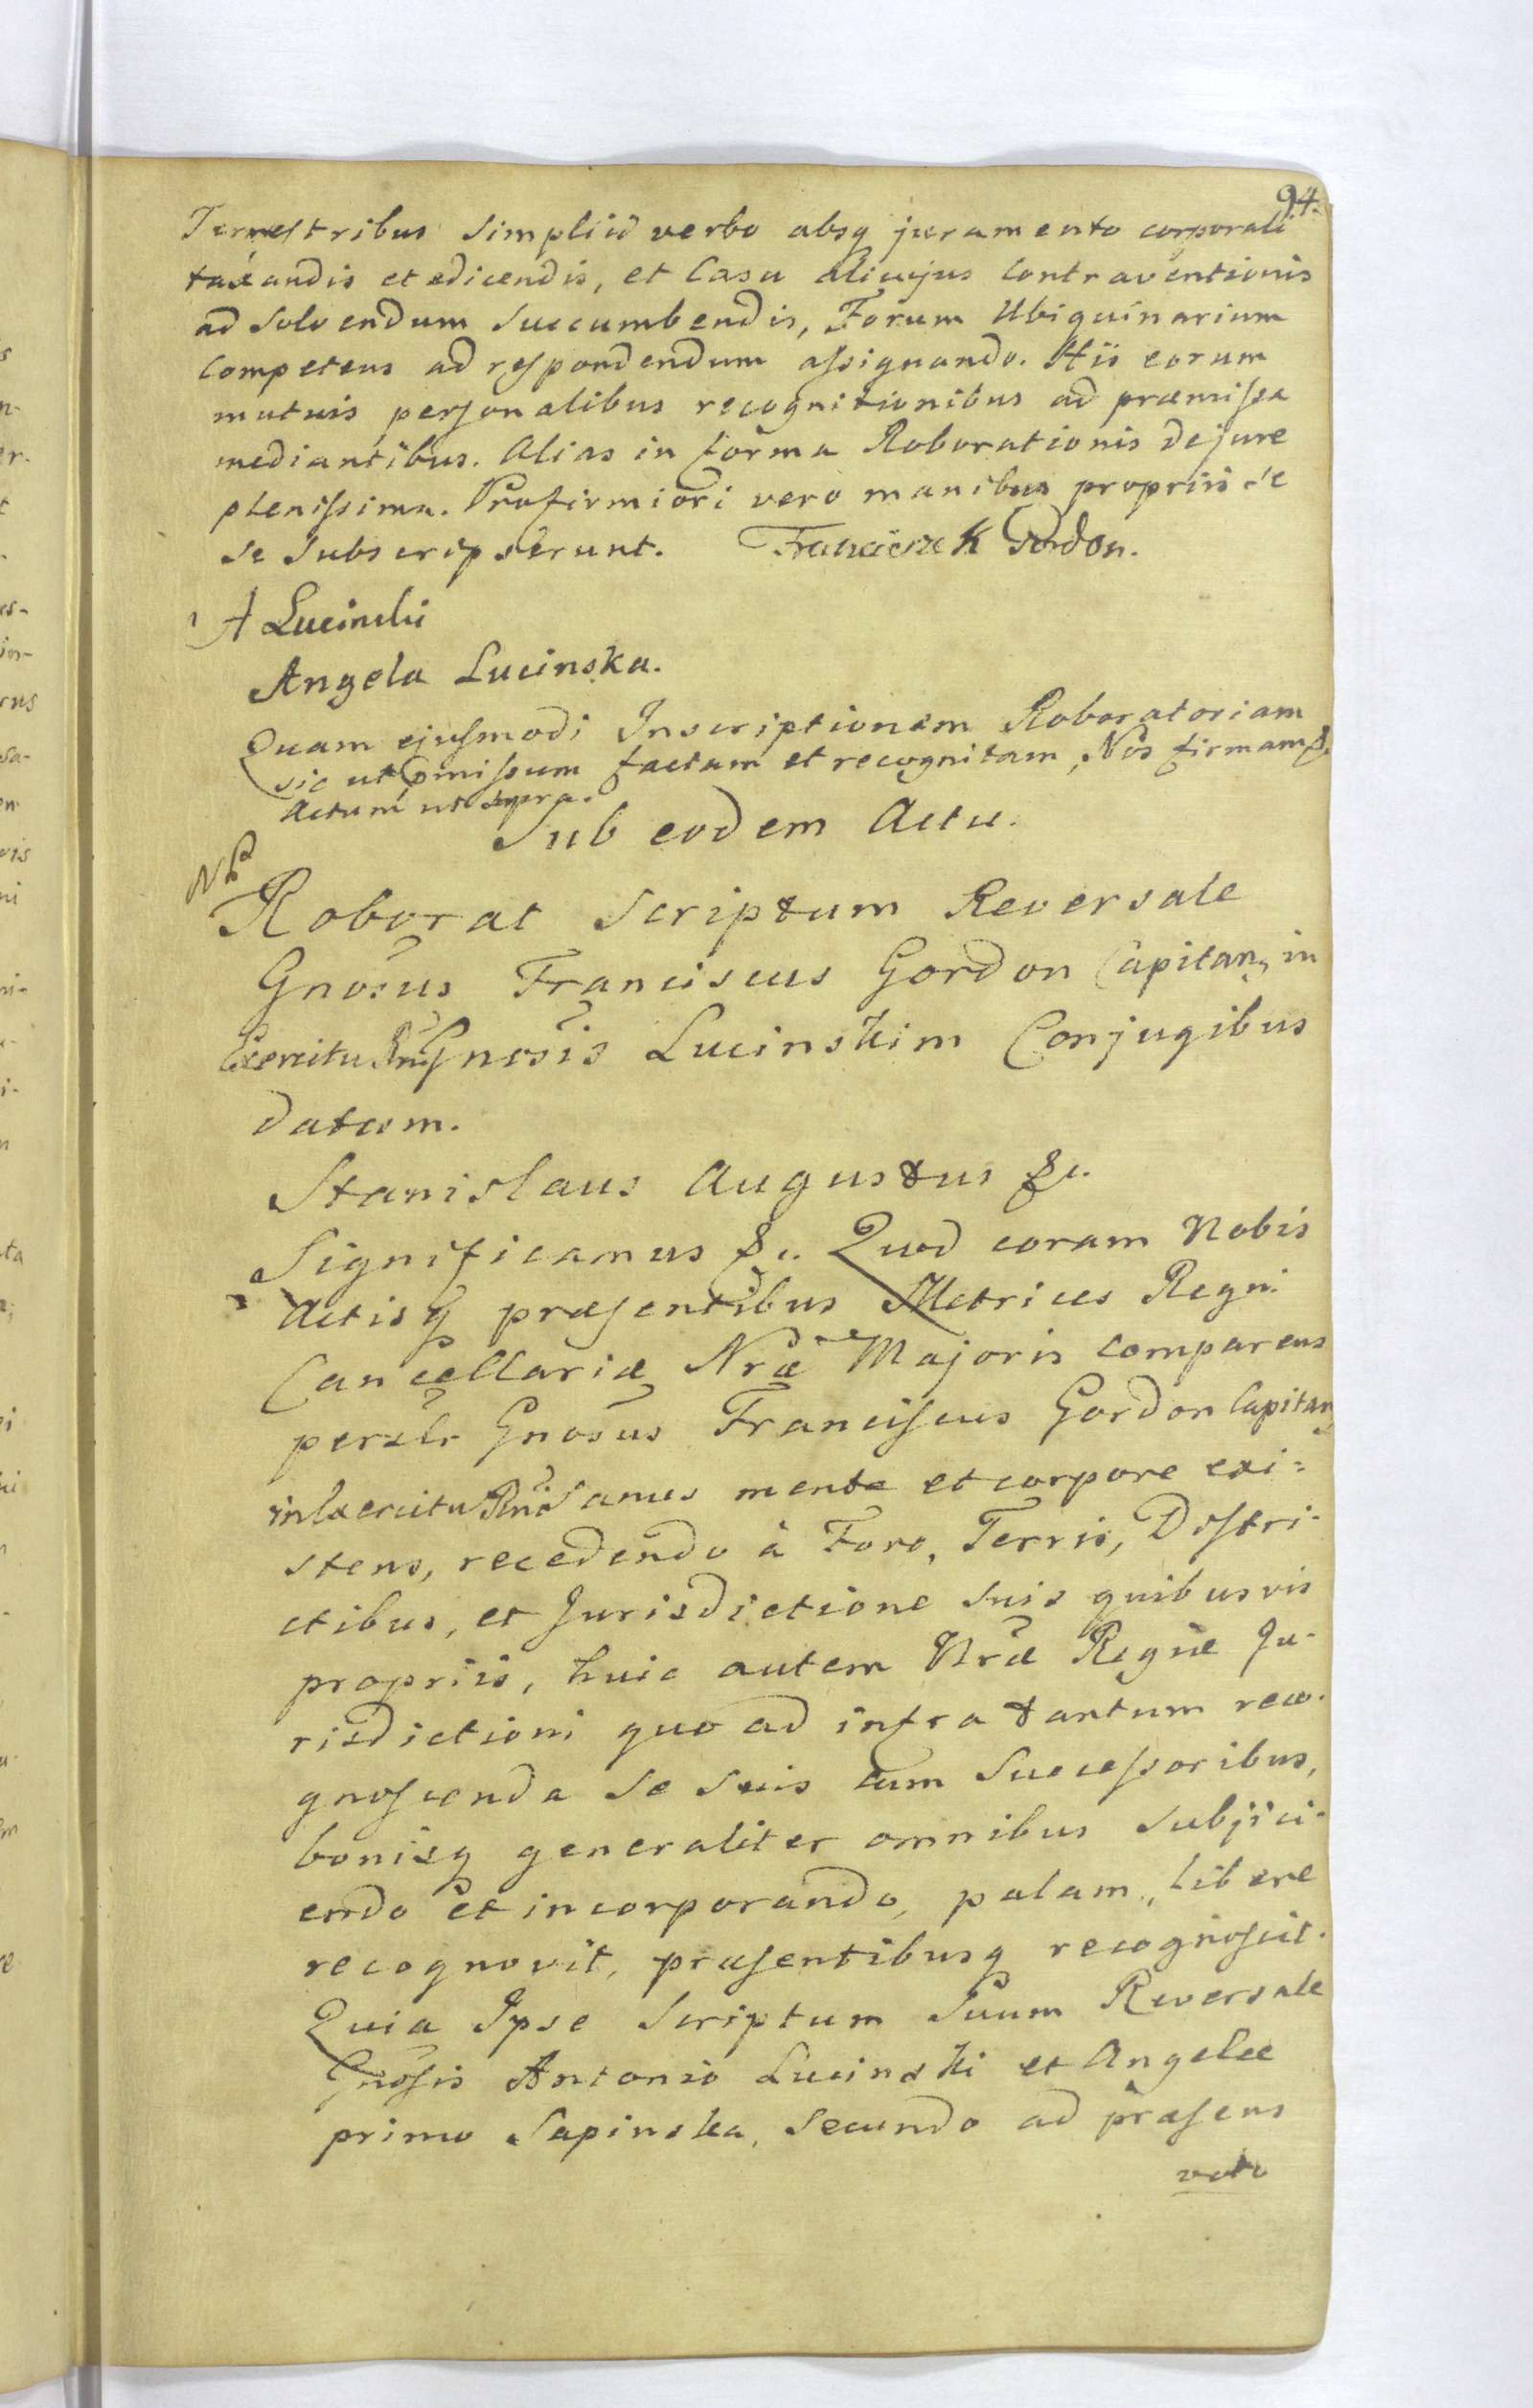 94.
Terrestribus simplici verbo absq juramento corporali
taxandis et edicendis, et Casu alicujus Contraventionis
ad Solvendum Succumbendis, Forum Ubiquinarium
Competens ad respondendum assignando. Hiis eorum
mutuis personalibus recognitionibus ad præmissa
mediantibus. Alias in forma Roborationis de jure
plenissima. Pro firmiori vero manibus propriis se
se Subscripserunt. Franciszek Gordon.
A Lucinski
Angela Lucinska.
Quam ejusmodi Inscriptionem Roboratoriam
sic ut pmissum factam et recognitam, Nos firmam &.
Actum ut supra.
Sub eodem Actu.
NB
Roborat Scriptum Reversale
Gnosus Franciscus Gordon Capitan, in
Exercitu Rni Gnosis Lucinskim Conjugibus
datum.
Stanislaus Augustus &c.
Significamus &c. Quod coram Nobis
Actisq præsentibus Metrices Regni
Cancellariæ Nræ Majoris comparens
persolr Gnosus Franciscus Gordon Capitan,
in Exercitu Rni Sanus mente et corpore exi=
stens, recedendo à Foro, Terris, Distri-
ctibus, et Jurisdictione suis quibusvis
propriis, huic autem Nræ Regiæ Ju-
risdictioni quo ad infra tantum reco-
gnoscenda se suis cum Successoribus,
bonisq generaliter omnibus subjici-
endo et incorporando, palam, libere
recognovit, præsentibusq recognoscit.
Quia Ipse Scriptum Suum Reversale
Gnosis Antonio Lucinski et Angelæ
primo Sapinska, Secundo ad præsens
voto